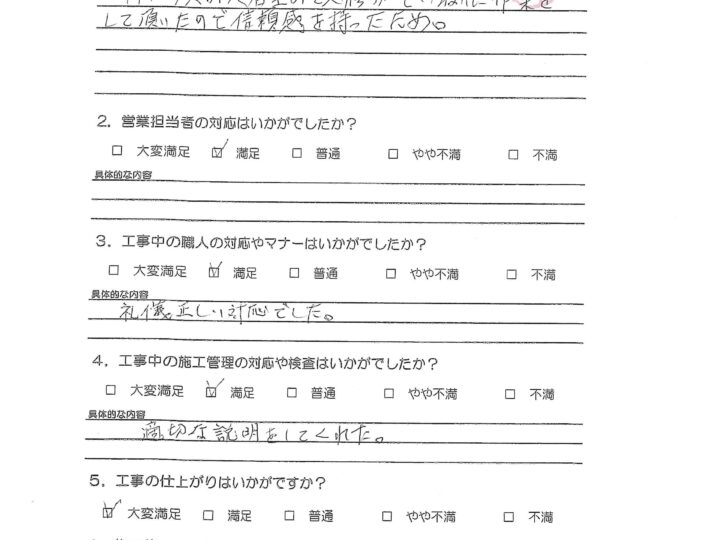 して頂いたので信頼感を持ったため。
2. 営業担当者の対応はいかがでしたか？
□ 大変満足 ☑ 満足 □ 普通 □ やや不満 □ 不満
具体的な内容
3. 工事中の職人の対応やマナーはいかがでしたか？
□ 大変満足 ☑ 満足 □ 普通 □ やや不満 □ 不満
具体的な内容
礼儀正しい対応でした。
4. 工事中の施工管理の対応や検査はいかがでしたか？
□ 大変満足 ☑ 満足 □ 普通 □ やや不満 □ 不満
具体的な内容
適切な説明をしてくれた。
5. 工事の仕上がりはいかがですか？
☑ 大変満足 □ 満足 □ 普通 □ やや不満 □ 不満